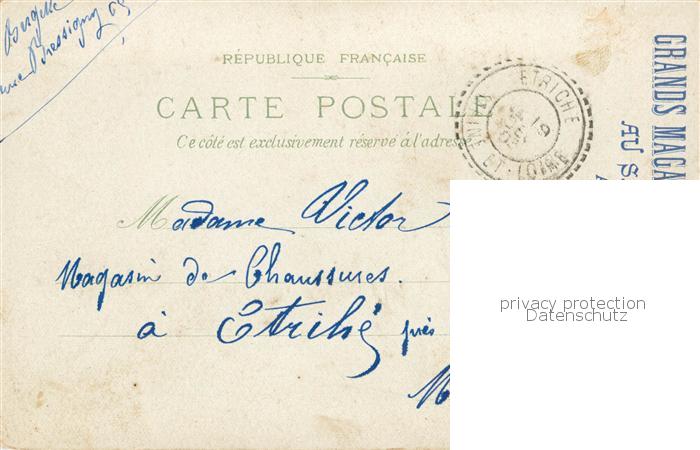 RÉPUBLIQUE FRANÇAISE
CARTE POSTALE
Ce côté est exclusivement réservé à l'adresse
ETRICHE
19
ET-LOIRE
GRANDS MAGA
AU S
Madame Victor
Magasin de Chaussures.
à Etriché près
M
privacy protection
Datenschutz